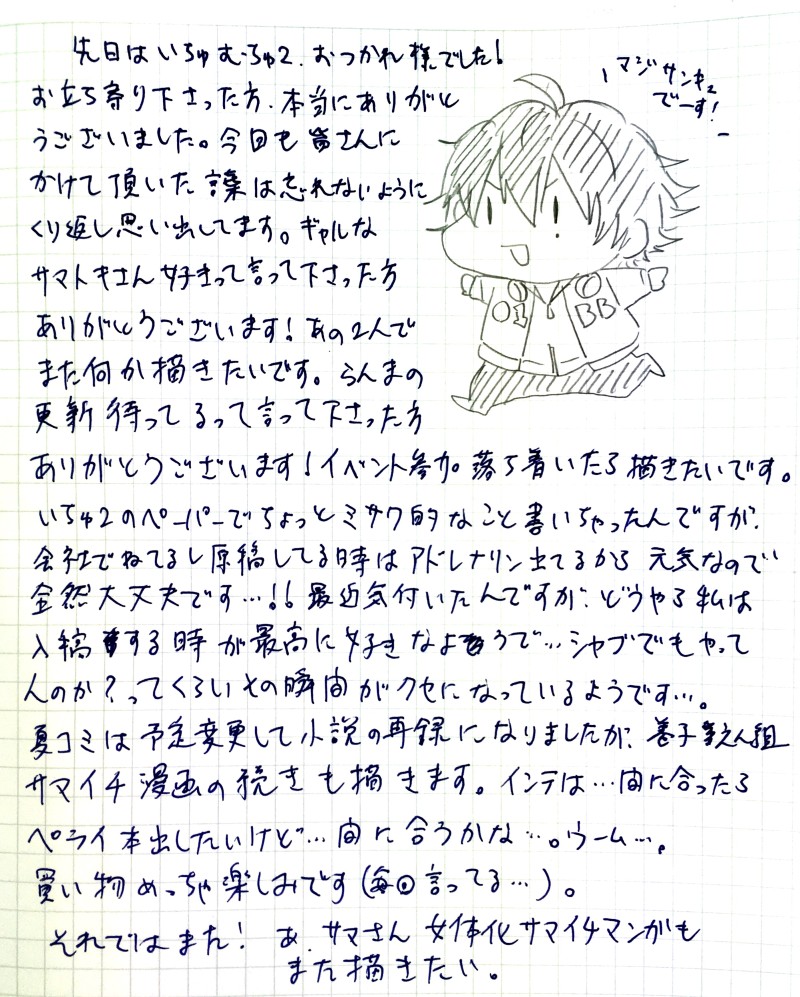 先日はいちゅむちゅ2、おつかれ様でした!
マジサンキュ
でーす!
お立ち寄り下さった方、本当にありがと
うございました。今回も皆さんに
かけて頂いた言葉は忘れないように
くり返し思い出してます。ギャルな
サマトキさん好きって言って下さった方
ありがとうございます!あの2人で
また何か描きたいです。らんまの
更新待ってるって言って下さった方
01 BB
ありがとうございます!イベント参加落ち着いたら描きたいです。
いちゅ2のペーパーでちょっとミサワ的なこと書いちゃったんですが、
会社でねてるし原稿してる時はアドレナリン出てるから元気なので
全然大丈夫です…!!最近気付いたんですが、どうやら私は
入稿する時が最高に好きなようで…シャブでもやって
んのか?ってくらいその瞬間がクセになっているようです…。
夏コミは予定変更して小説の再録になりましたが、養子縁組
サマイチ漫画の続きも描きます。インテは…間に合ったら
ペライ本出したいけど…間に合うかな…。ウーム…。
買い物めっちゃ楽しみです(毎回言ってる…)。
それではまた! あ、サマさん女体化サマイチマンガも
また描きたい。